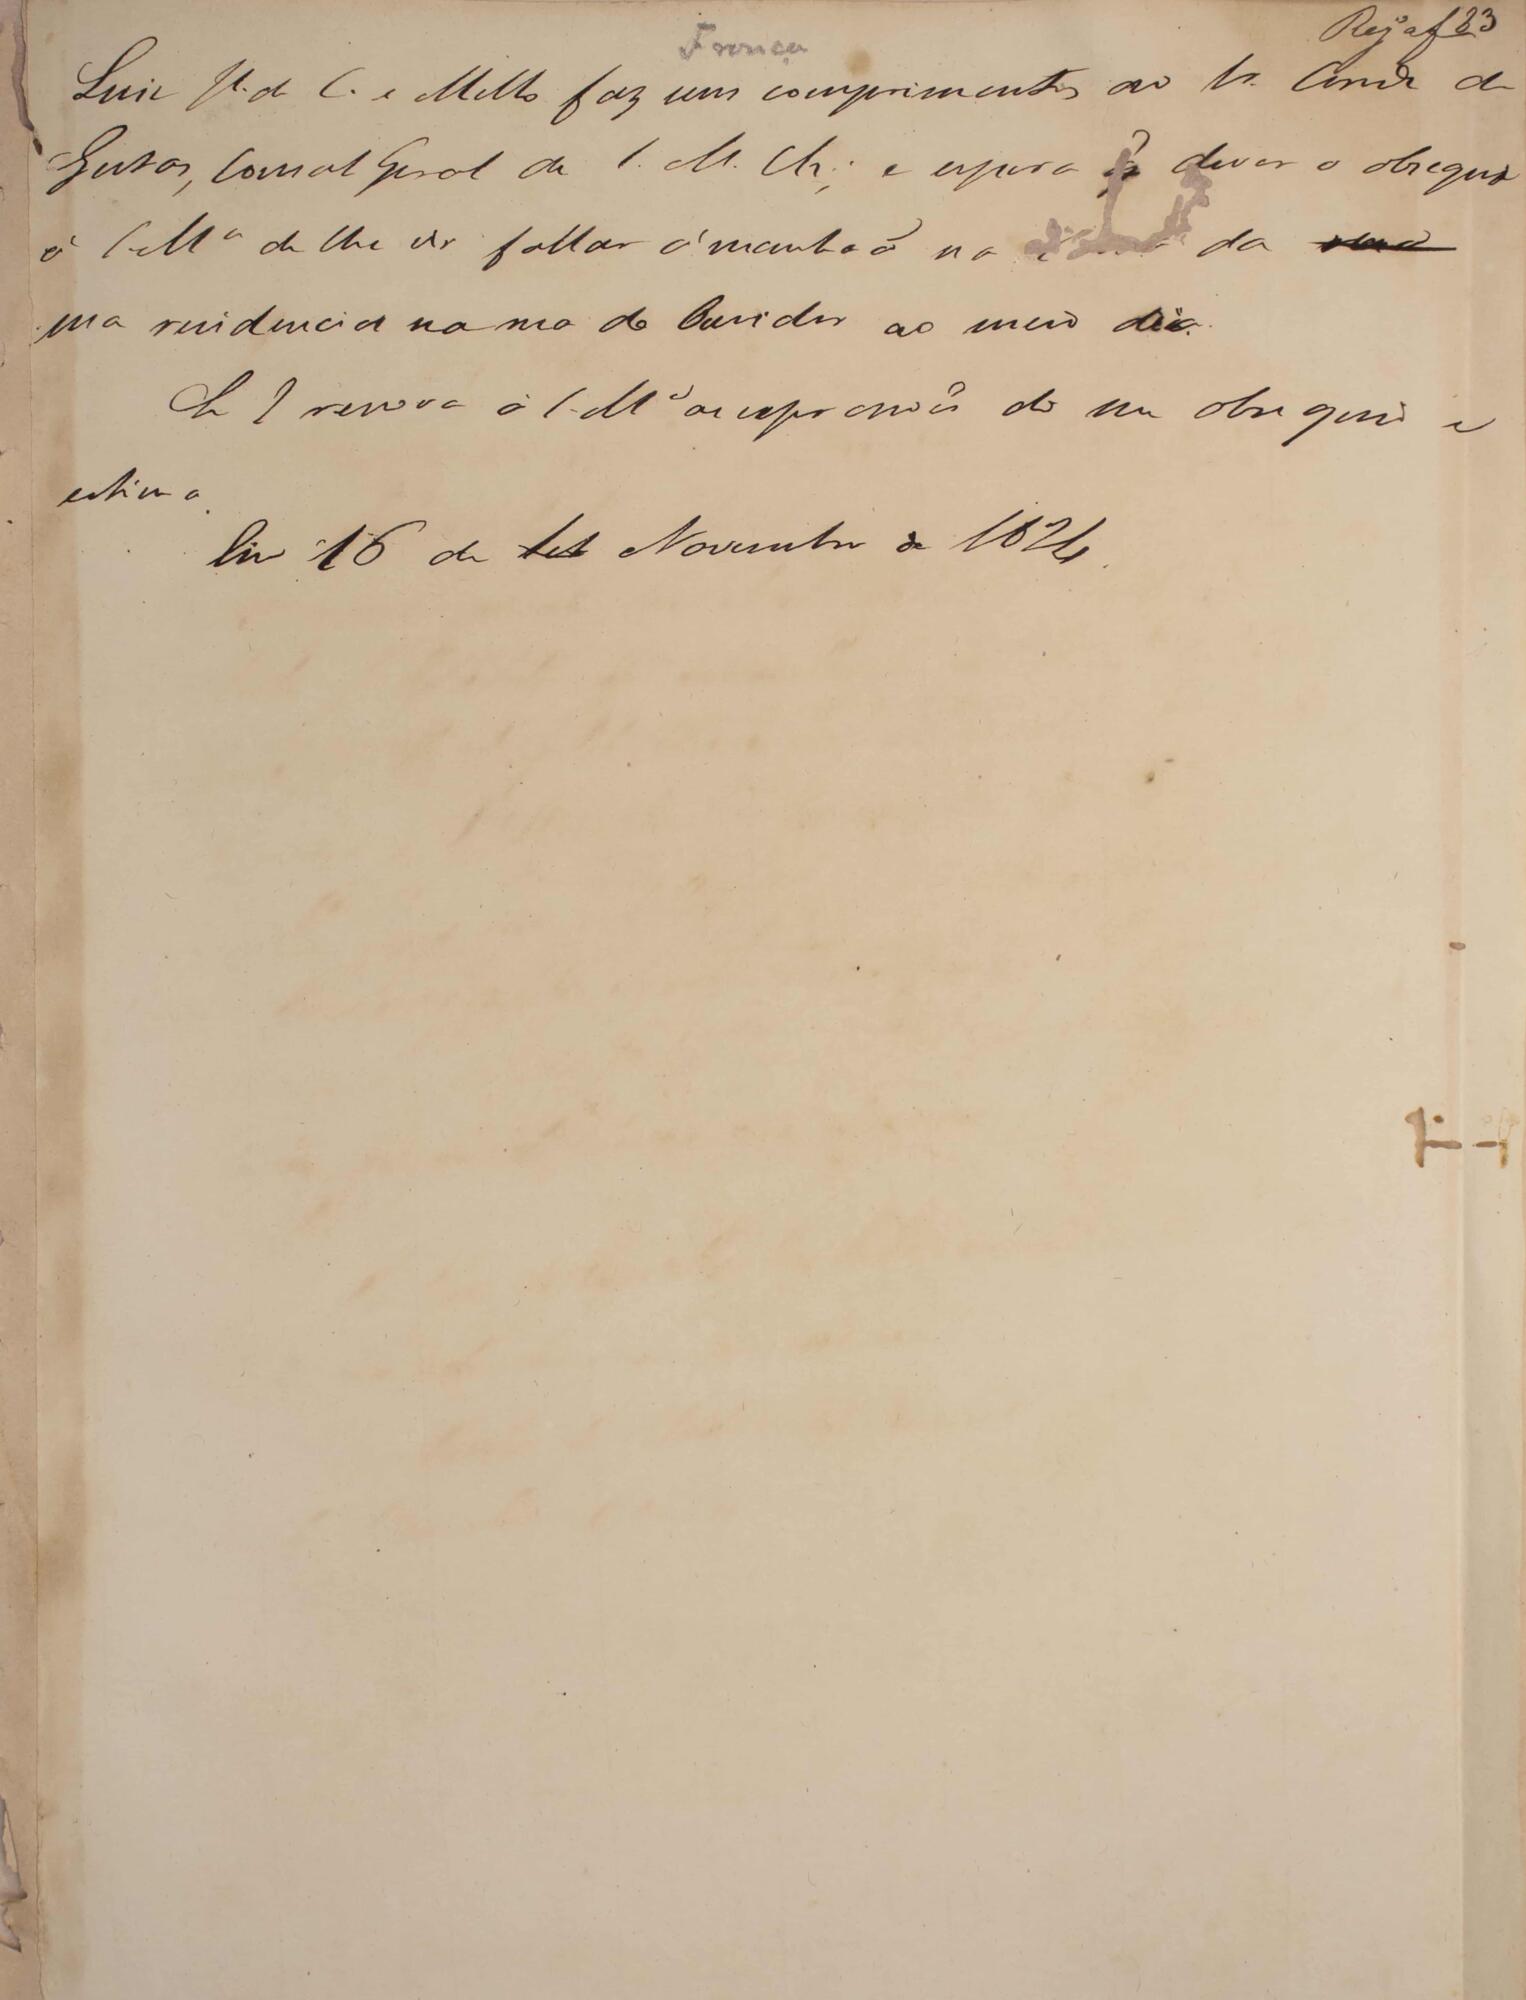 França
Reg.o a f 83
Luiz J. de C. e Mello faz seus comprimentos ao Sr. Conde de
Gestas, Consul Geral de S. M. Ch.; e espera dever o obsequio
á S. M.a de lhe vir fallar ámanhaã na da
sua residencia na rua do Ouvidor ao meio dia.
L J renova á S. M.e as expressoẽs do seu obsequio e
estima.
Em 16 de Set Novembro de 1824.